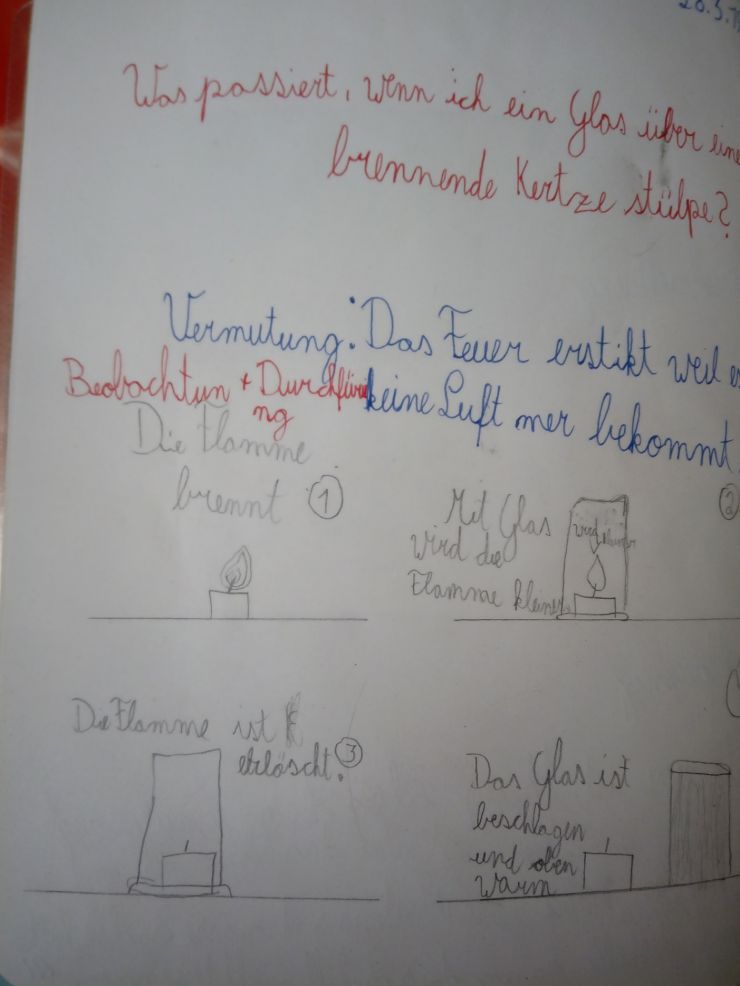 28.3.
Was passiert, wenn ich ein Glas über eine
brennende Kertze stülpe?
Vermutung: Das Feuer erstikt weil es
keine Luft mer bekommt.
Beobachtun + Durchfüru
ng
Die Flamme
brennt ①
Mit Glas
wird die
Flamme kleiner
wird
②
Die Flamme ist
erlöscht. ③
Das Glas ist
beschlagen
und oben
warm